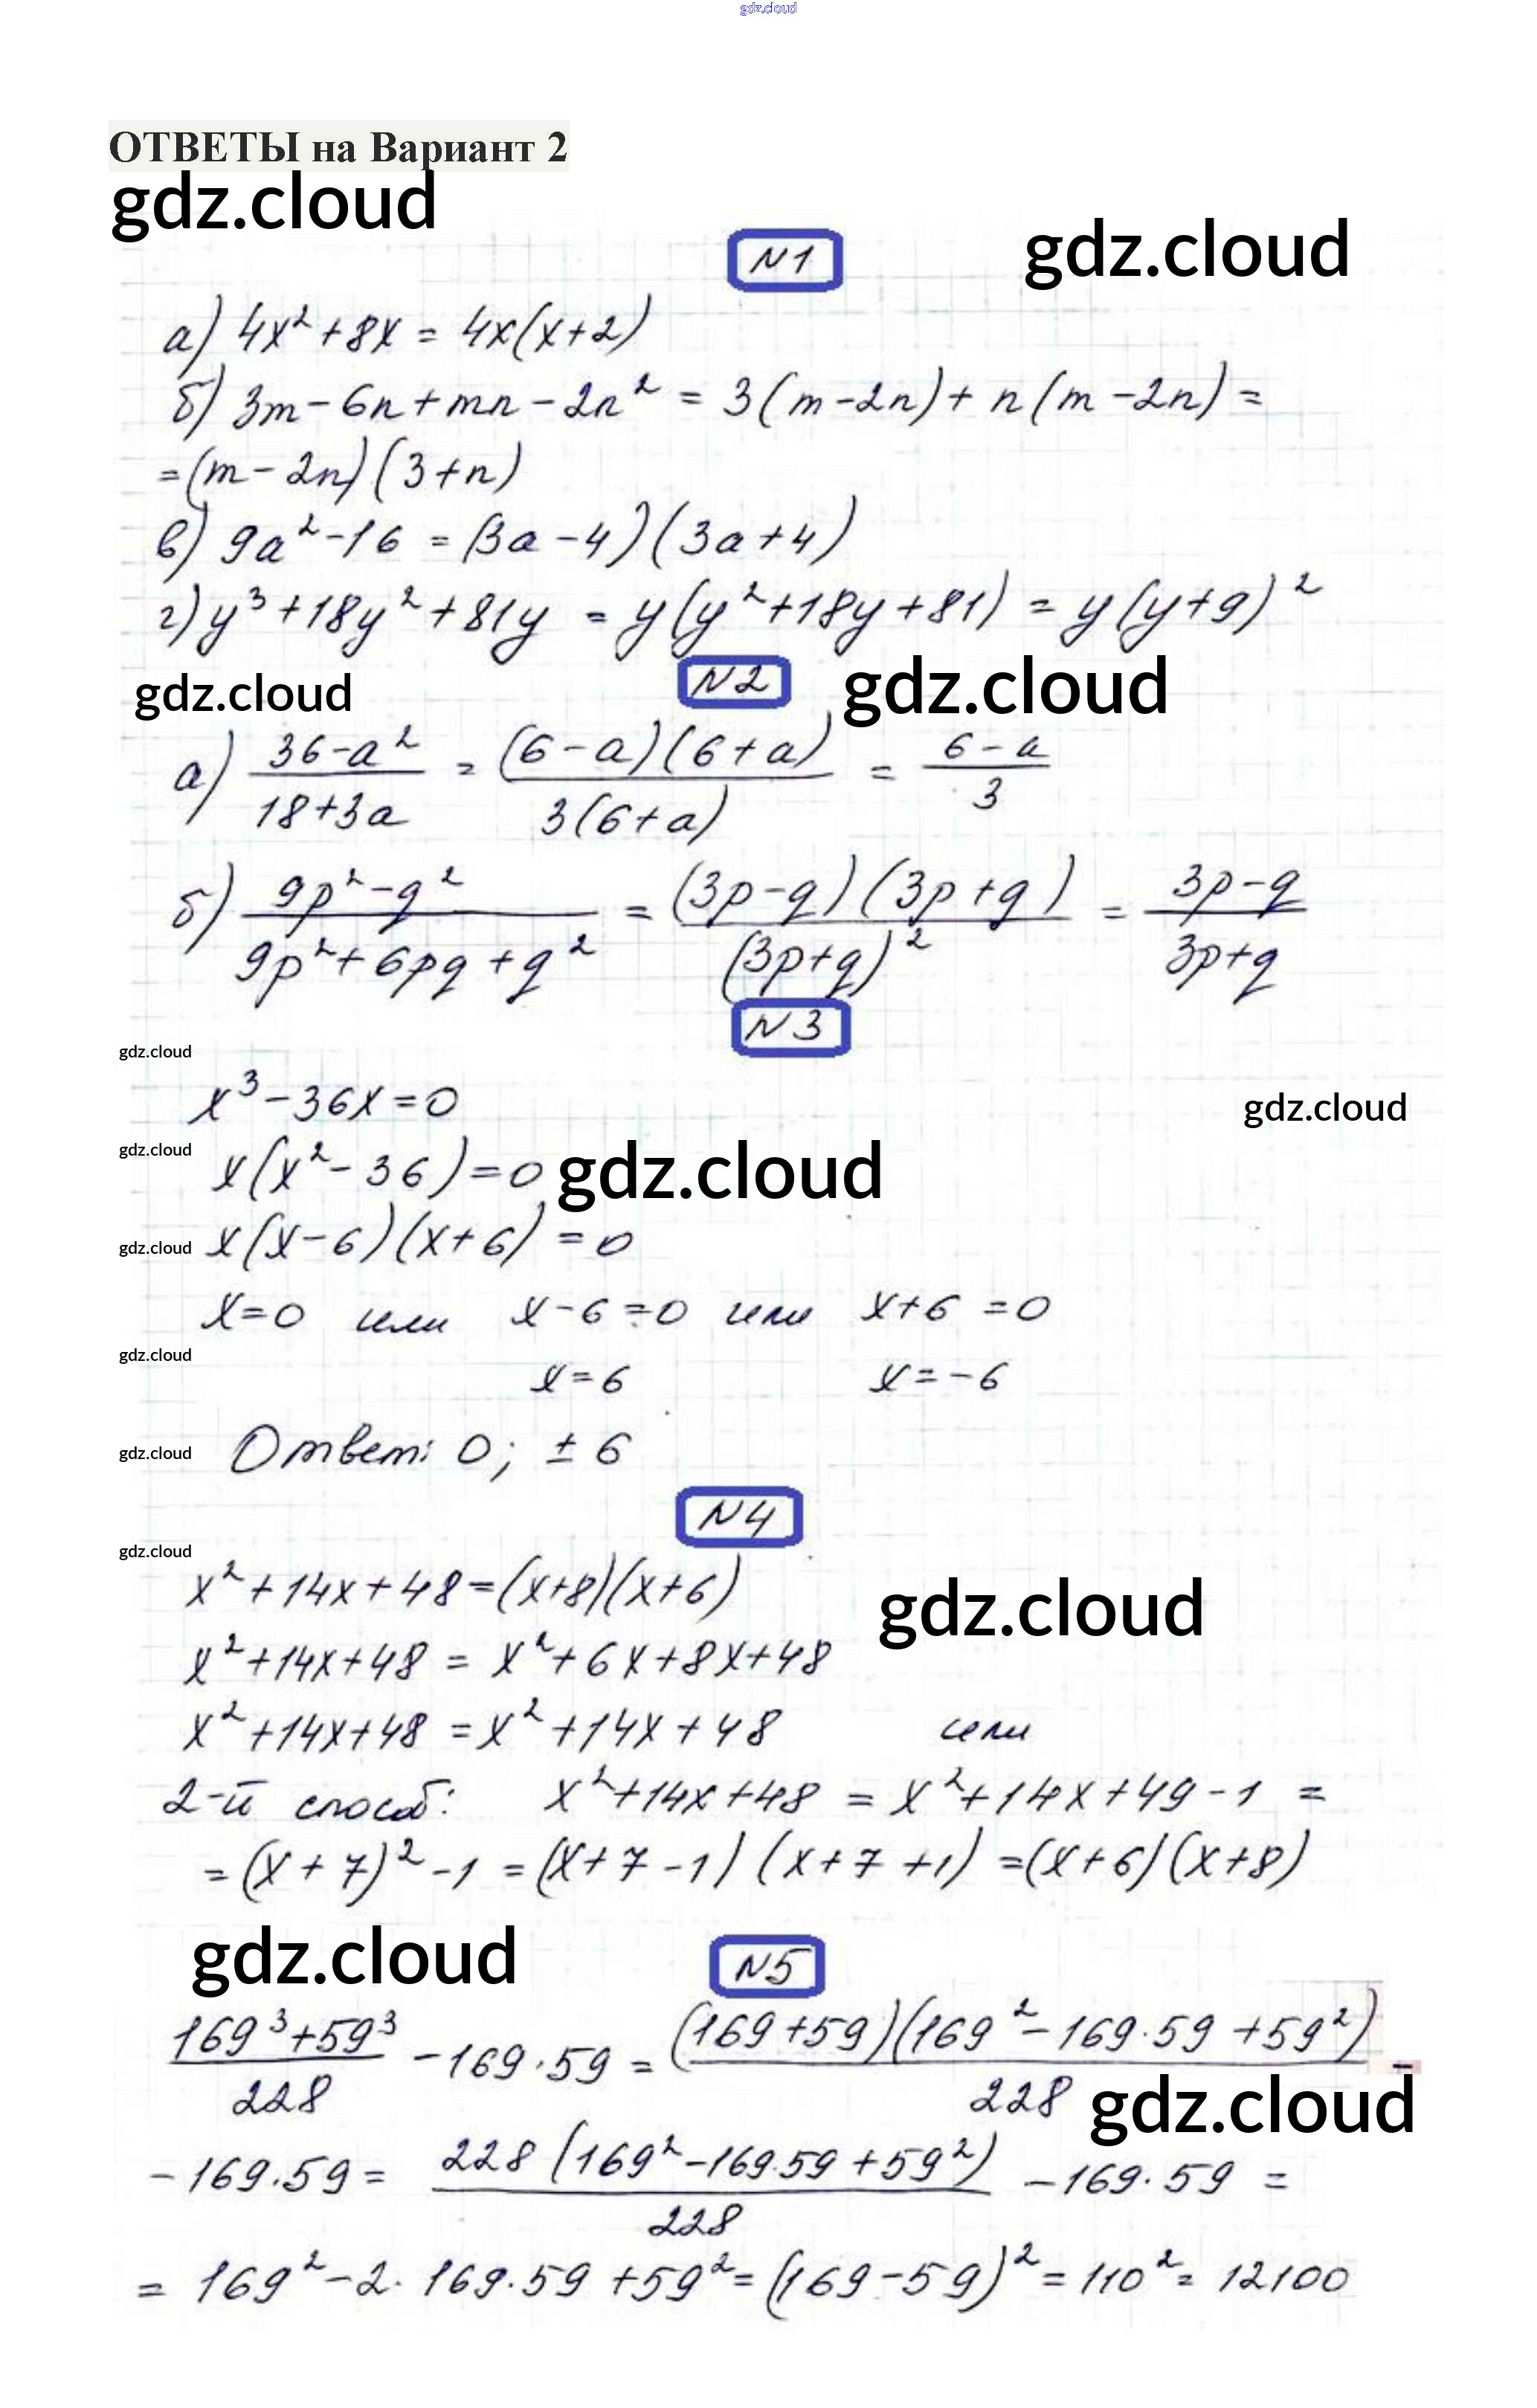 gdz.cloud
ОТВЕТЫ на Вариант 2
gdz.cloud
gdz.cloud
N1
а) 4x² + 8x = 4x(x+2)
б) 3m - 6n + mn - 2n² = 3(m-2n) + n(m-2n) =
= (m-2n)(3+n)
в) 9a² - 16 = (3a-4)(3a+4)
г) y³ + 18y² + 81y = y(y² + 18y + 81) = y(y+9)²
N2
gdz.cloud
gdz.cloud
а) (36-a²)/(18+3a) = (6-a)(6+a)/3(6+a) = (6-a)/3
б) (9p²-q²)/(9p²+6pq+q²) = (3p-q)(3p+q)/(3p+q)² = (3p-q)/(3p+q)
N3
gdz.cloud
x³ - 36x = 0
gdz.cloud
gdz.cloud
x(x² - 36) = 0
gdz.cloud
gdz.cloud
x(x-6)(x+6) = 0
x=0 или x-6=0 или x+6=0
gdz.cloud
x=6 x=-6
gdz.cloud
Ответ: 0; ± 6
N4
gdz.cloud
x² + 14x + 48 = (x+8)(x+6)
gdz.cloud
x² + 14x + 48 = x² + 6x + 8x + 48
x² + 14x + 48 = x² + 14x + 48 или
2-й способ: x² + 14x + 48 = x² + 14x + 49 - 1 =
= (x+7)² - 1 = (x+7-1)(x+7+1) = (x+6)(x+8)
gdz.cloud
N5
(169³+59³)/228 - 169·59 = (169+59)(169² - 169·59 + 59²)/228 -
gdz.cloud
- 169·59 = 228(169² - 169·59 + 59²)/228 - 169·59 =
= 169² - 2·169·59 + 59² = (169-59)² = 110² = 12100